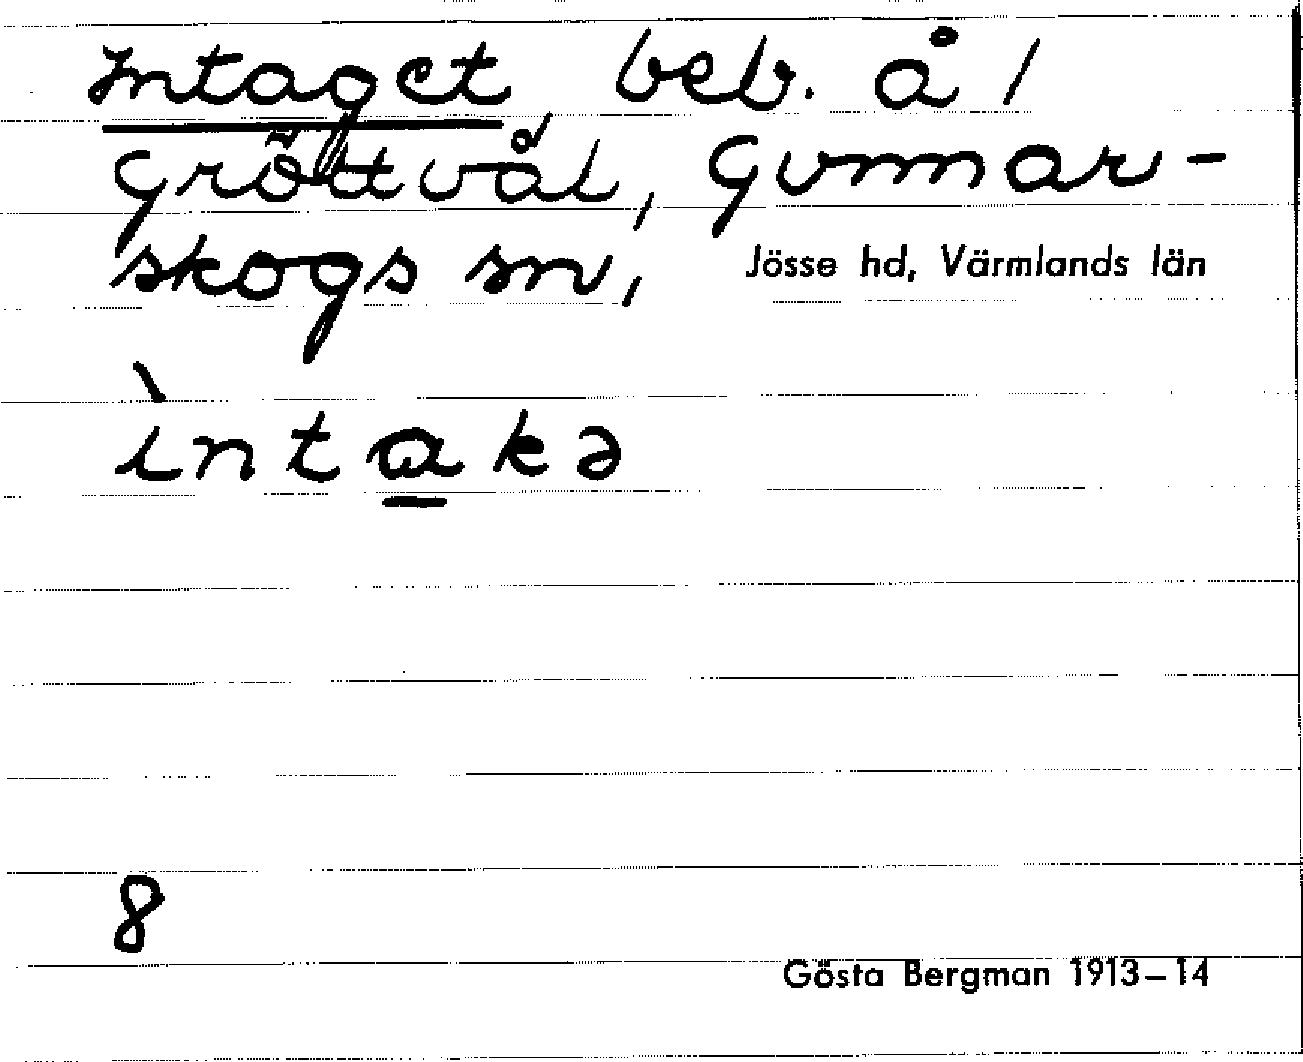 Intaget beb. å 1
Gröttvål, Gunnar-
skogs sn, Jösse hd, Värmlands län
ìntakə
8
Gösta Bergman 1913–14